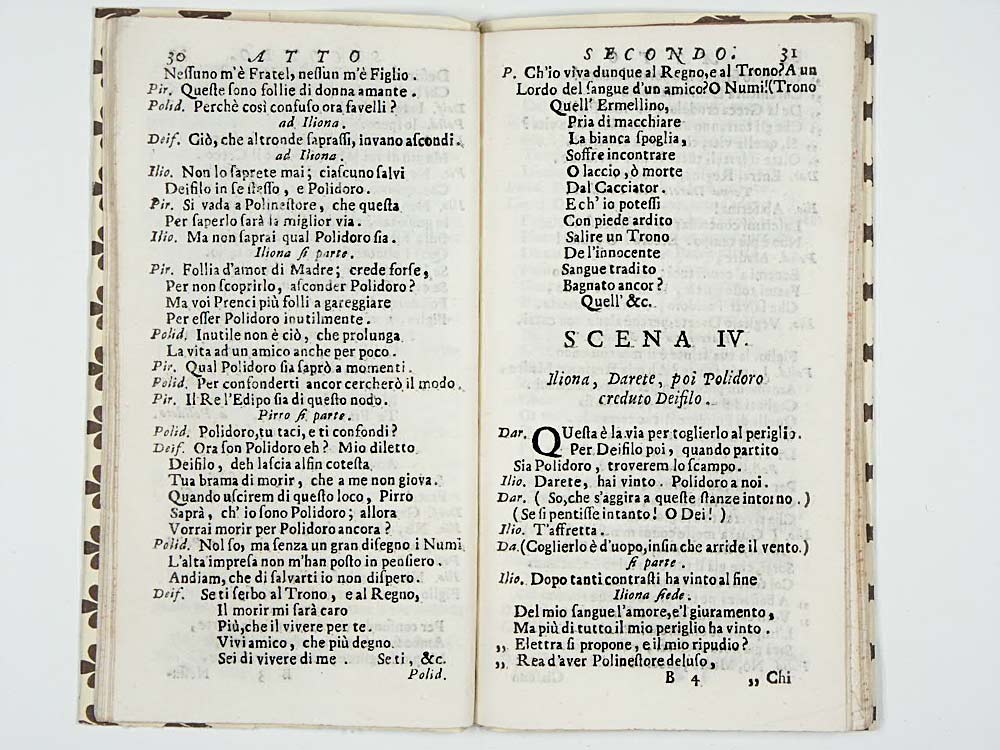 30 ATTO
Neſſuno m'è Fratel, neſſun m'è Figlio.
Pir. Queſte ſono follie di donna amante.
Polid. Perchè così confuſo ora favelli?
ad Iliona.
Deif. Ciò, che altronde ſapraſſi, invano aſcondi.
ad Iliona.
Ilio. Non lo ſaprete mai; ciaſcuno ſalvi
Deifilo in ſe ſteſſo, e Polidoro.
Pir. Si vada a Polineſtore, che queſta
Per ſaperlo ſarà la miglior via.
Ilio. Ma non ſaprai qual Polidoro ſia.
Iliona ſi parte.
Pir. Follia d'amor di Madre; crede forſe,
Per non ſcoprirlo, aſconder Polidoro?
Ma voi Prenci più folli a gareggiare
Per eſſer Polidoro inutilmente.
Polid. Inutile non è ciò, che prolunga
La vita ad un amico anche per poco.
Pir. Qual Polidoro ſia ſaprò a momenti.
Polid. Per confonderti ancor cercherò il modo.
Pir. Il Re l'Edipo ſia di queſto nodo.
Pirro ſi parte.
Polid. Polidoro, tu taci, e ti confondi?
Deif. Ora ſon Polidoro eh? Mio diletto
Deifilo, deh laſcia alfin coteſta
Tua brama di morir, che a me non giova.
Quando uſcirem di queſto loco, Pirro
Saprà, ch'io ſono Polidoro; allora
Vorrai morir per Polidoro ancora?
Polid. Nol ſo, ma ſenza un gran diſegno i Numi
L'alta impreſa non m'han poſto in penſiero.
Andiam, che di ſalvarti io non diſpero.
Deif. Se ti ſerbo al Trono, e al Regno,
Il morir mi ſarà caro
Più, che il vivere per te.
Vivi amico, che più degno
Sei di vivere di me. Se ti, &c.
Polid.
SECONDO. 31
P. Ch'io viva dunque al Regno, e al Trono? A un
Lordo del ſangue d'un amico? O Numi! (Trono
Quell' Ermellino,
Pria di macchiare
La bianca ſpoglia,
Soffre incontrare
O laccio, ò morte
Dal Cacciator.
E ch'io poteſſi
Con piede ardito
Salire un Trono
De l'innocente
Sangue tradito
Bagnato ancor?
Quell' &c.
SCENA IV.
Iliona, Darete, poi Polidoro
creduto Deifilo.
Dar. QUeſta è la via per toglierlo al periglio.
Per Deifilo poi, quando partito
Sia Polidoro, troverem lo ſcampo.
Ilio. Darete, hai vinto. Polidoro a noi.
Dar. (So, che s'aggira a queſte ſtanze intorno.)
(Se ſi pentiſſe intanto! O Dei!)
Ilio. T'affretta.
Da. (Coglierlo è d'uopo, inſin che arride il vento.)
ſi parte.
Ilio. Dopo tanti contraſti ha vinto al fine
Iliona ſiede.
Del mio ſangue l'amore, e'l giuramento,
Ma più di tutto il mio periglio ha vinto.
„ Elettra ſi propone, e il mio ripudio?
„ Rea d'aver Polineſtore deluſo,
B 4 „ Chi